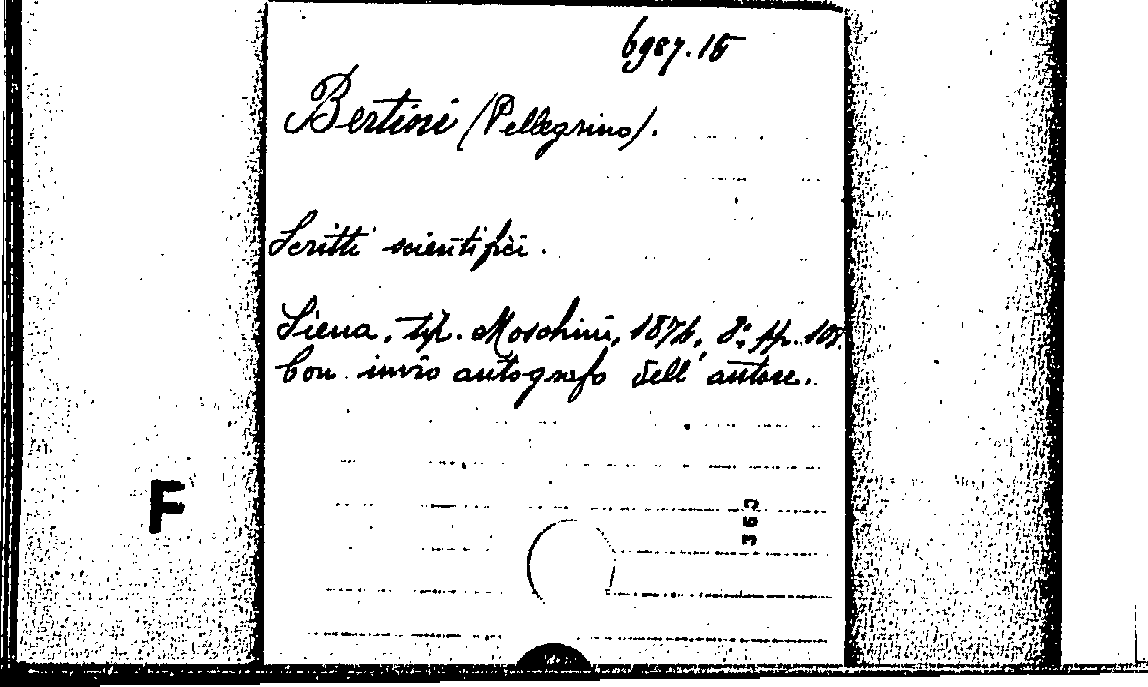 6987.15
Bertini (Pellegrino).
Scritti scientifici.
Siena, tip. Moschini, 1876, 8° pp. 108.
Con invio autografo dell'autore.
F